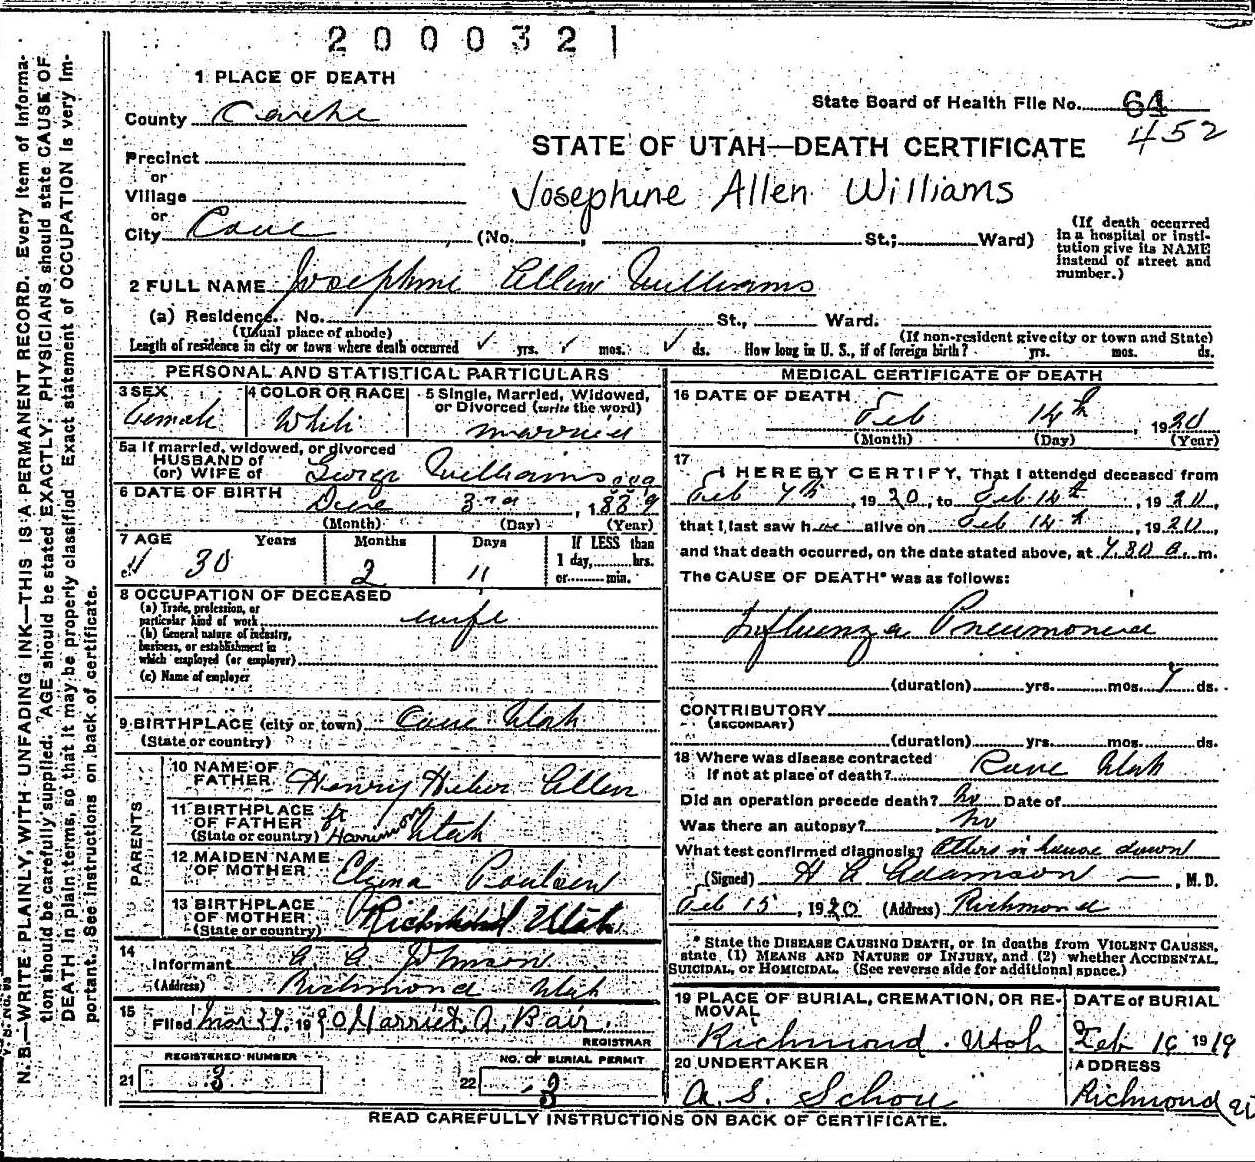 2000321
1 PLACE OF DEATH
County
State Board of Health File No. 64
452
STATE OF UTAH—DEATH CERTIFICATE
Precinct
or
Village
Josephine Allen Williams
or
City Cove (No. St.; Ward)
(If death occurred in a hospital or insti-
tution give its NAME
instead of street and
number.)
2 FULL NAME Josephine Allen Williams
(a) Residence. No. St., Ward.
(Usual place of abode) (If non-resident give city or town and State)
Length of residence in city or town where death occurred ✓ yrs. mos. ✓ ds. How long in U. S., if of foreign birth? yrs. mos. ds.
PERSONAL AND STATISTICAL PARTICULARS
3 SEX 4 COLOR OR RACE 5 Single, Married, Widowed,
or Divorced (write the word)
Female White married
5a If married, widowed, or divorced
HUSBAND of
(or) WIFE of George Williams
6 DATE OF BIRTH
Dec 3rd, 1889
(Month) (Day) (Year)
7 AGE Years Months Days If LESS than
1 day, hrs.
or min.
30 2 11
8 OCCUPATION OF DECEASED
(a) Trade, profession, or
particular kind of work wife
(b) General nature of industry,
business, or establishment in
which employed (or employer)
(c) Name of employer
9 BIRTHPLACE (city or town) Cove Utah
(State or country)
PARENTS
10 NAME OF
FATHER Henry Heber Allen
11 BIRTHPLACE
OF FATHER
(State or country) Utah
12 MAIDEN NAME
OF MOTHER Poulsen
13 BIRTHPLACE
OF MOTHER
(State or country) Richmond Utah
14
Informant Johnson
(Address) Richmond Utah
15
Filed Mar 27, 1920 Harriet A. Bair.
REGISTRAR
REGISTERED NUMBER NO. OF BURIAL PERMIT
21 3 22 3
MEDICAL CERTIFICATE OF DEATH
16 DATE OF DEATH
Feb 14th, 1920
(Month) (Day) (Year)
17
I HEREBY CERTIFY, That I attended deceased from
Feb 7th, 1920, to Feb 14th, 1920,
that I last saw h alive on Feb 14th, 1920,
and that death occurred, on the date stated above, at 730 a. m.
The CAUSE OF DEATH* was as follows:
Influenza Pneumonia
(duration) yrs. mos. 7 ds.
CONTRIBUTORY
(SECONDARY)
(duration) yrs. mos. ds.
18 Where was disease contracted
if not at place of death? Cove Utah
Did an operation precede death? no Date of
Was there an autopsy? no
What test confirmed diagnosis? Others in house down
(Signed) Adamson, M. D.
Feb 15, 1920 (Address) Richmond
* State the DISEASE CAUSING DEATH, or in deaths from VIOLENT CAUSES,
state (1) MEANS AND NATURE OF INJURY, and (2) whether ACCIDENTAL,
SUICIDAL, or HOMICIDAL. (See reverse side for additional space.)
19 PLACE OF BURIAL, CREMATION, OR RE-
MOVAL
Richmond. Utah
DATE of BURIAL
Feb 16 1919
20 UNDERTAKER
A. S. Schou
ADDRESS
Richmond
READ CAREFULLY INSTRUCTIONS ON BACK OF CERTIFICATE.
N. B.—WRITE PLAINLY, WITH UNFADING INK—THIS IS A PERMANENT RECORD. Every item of informa-
tion should be carefully supplied. AGE should be stated EXACTLY. PHYSICIANS should state CAUSE OF
DEATH in plain terms, so that it may be properly classified. Exact statement of OCCUPATION is very im-
portant. See instructions on back of certificate.